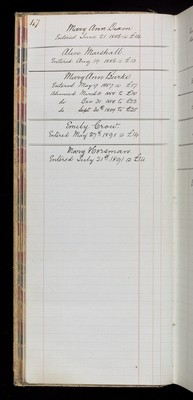 47
Mary Ann Dixon
Entered June 21 1886 @ £16
Alice Marshall
Entered Aug 19 1886 @ £13
Mary Ann Burke
Entered May 17 1887 @ £17
Advanced March 1888 to £20
do Dec 31 1888 to £23
do Sept 20th 1889 to £25
Emily Crow.
Entered May 27th 1891 @ £14
Mary Horsman
Entered July 21st 1891 @ £14